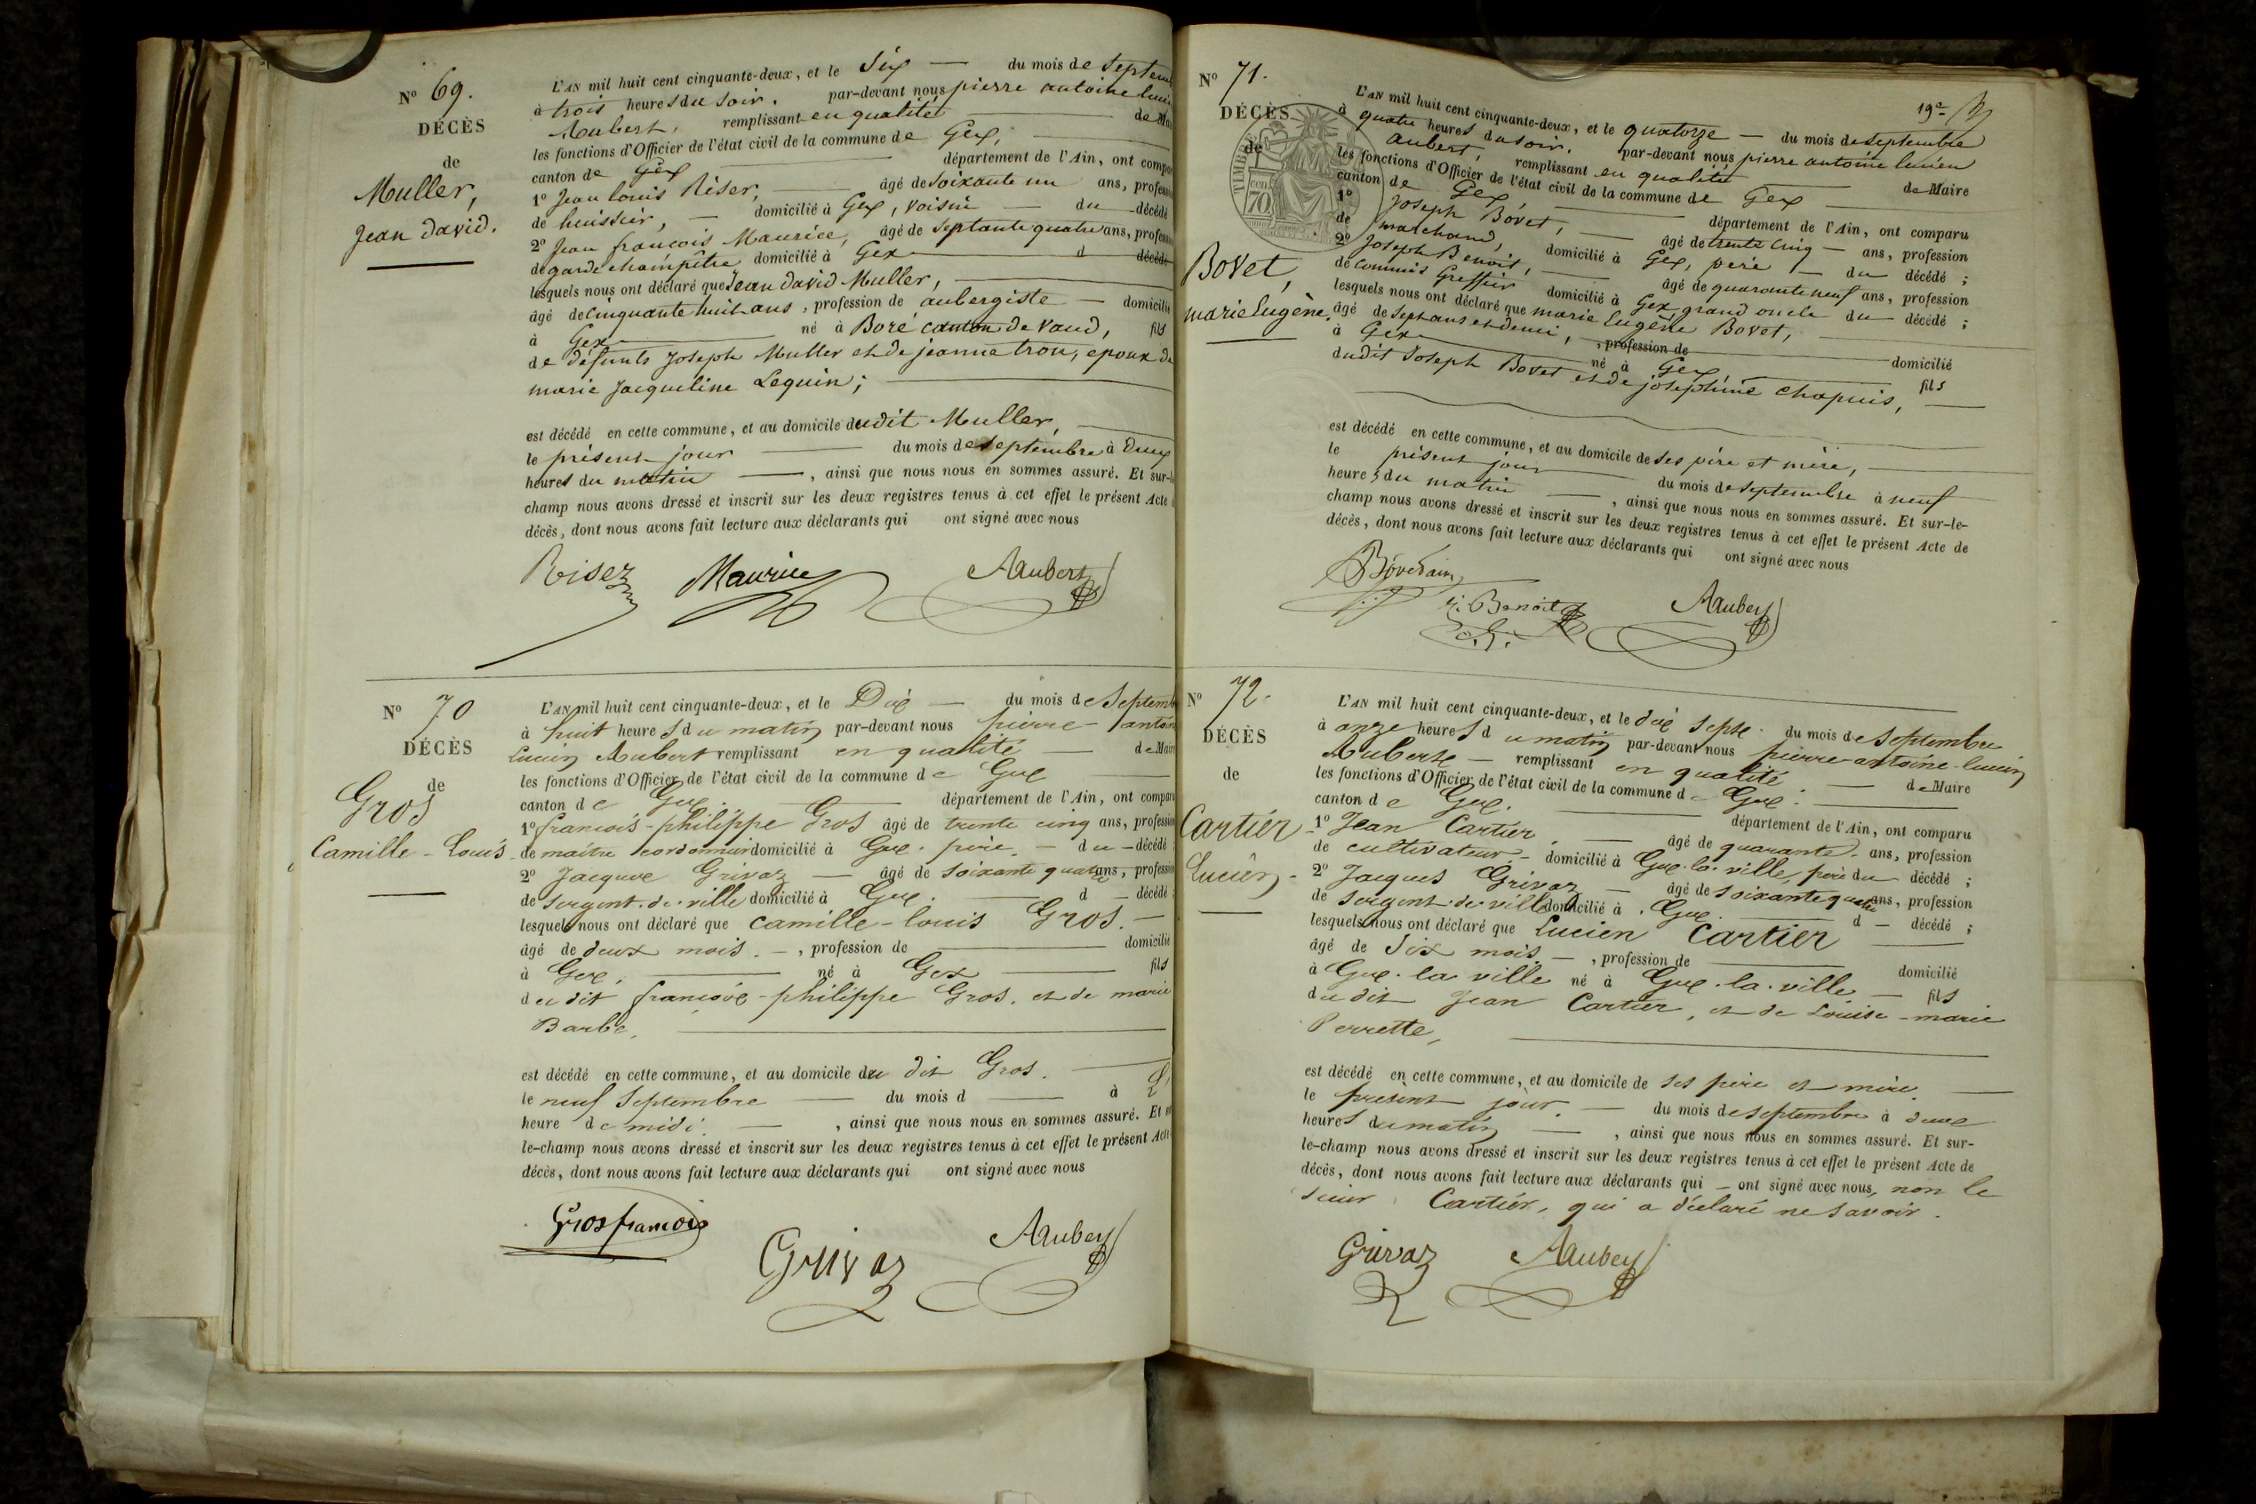 N° 69.
DÉCÈS
de
Muller,
Jean David.
L'AN mil huit cent cinquante-deux, et le Six — du mois de Septem
à trois heures du soir. par-devant nous pierre antoine luci
Aubert, remplissant en qualité de Mai
les fonctions d'Officier de l'état civil de la commune de Gex,
canton de Gex département de l'Ain, ont compa
1° Jean louis Riser, âgé de Soixante un ans, profess
de huissier, — domicilié à Gex, voisin — du décédé
2° Jean francois Maurice, âgé de Septante quatre ans, profess
de garde champêtre domicilié à Gex d décédé
lesquels nous ont déclaré que Jean David Muller,
âgé de Cinquante huit ans, profession de aubergiste — domicilié
à Gex né à Boré canton de Vaud, fils
de défunts Joseph Muller et de jeanne tron, epoux de
marie Jacqueline Lequin;
est décédé en cette commune, et au domicile dudit Muller,
le présent jour du mois de septembre à Deux
heures du matin —, ainsi que nous nous en sommes assuré. Et sur-le
champ nous avons dressé et inscrit sur les deux registres tenus à cet effet le présent Acte
décès, dont nous avons fait lecture aux déclarants qui ont signé avec nous
Riser Maurice Aubert
N° 70
DÉCÈS
de
Gros
Camille-Louis
L'AN mil huit cent cinquante-deux, et le Dix — du mois de Septemb
à huit heures du matin par-devant nous pierre-antoin
Lucien Aubert remplissant en qualité — de Maire
les fonctions d'Officier de l'état civil de la commune de Gex
canton de Gex. département de l'Ain, ont compar
1° francois-philippe Gros âgé de trente cinq ans, profession
de maître cordonnier domicilié à Gex. père. — du — décédé
2° Jacques Grivaz — âgé de Soixante quatre ans, profession
de sergent-de-ville domicilié à Gex. d — décédé
lesquels nous ont déclaré que Camille-louis Gros. —
âgé de deux mois. —, profession de domicilié
à Gex. né à Gex fils
du dit françois-philippe Gros. et de marie
Barbe.
est décédé en cette commune, et au domicile du dit Gros.
le neuf Septembre — du mois d à
heure de midi. —, ainsi que nous nous en sommes assuré. Et
le-champ nous avons dressé et inscrit sur les deux registres tenus à cet effet le présent Acte
décès, dont nous avons fait lecture aux déclarants qui ont signé avec nous
Gros francois Grivaz Aubert
19e
N° 71.
DÉCÈS
de
TIMBRE
70
Bovet,
marie Eugène.
L'AN mil huit cent cinquante-deux, et le quatorze — du mois de septembre
à quatre heures du soir. par-devant nous pierre antoine lucien
Aubert, remplissant en qualité de Maire
les fonctions d'Officier de l'état civil de la commune de Gex
canton de Gex département de l'Ain, ont comparu
1° Joseph Bovet, — âgé de trente cinq — ans, profession
de marchand, domicilié à Gex, père — du décédé;
2° Joseph Benoit, âgé de quarante neuf ans, profession
de commis Greffier domicilié à Gex grand oncle du décédé;
lesquels nous ont déclaré que marie Eugène Bovet,
âgé de sept ans et demi, profession de domicilié
à Gex né à Gex, fils
dudit Joseph Bovet et de joséphine Chapuis,
est décédé en cette commune, et au domicile de ses père et mère,
le présent jour du mois de septembre à neuf
heures du matin —, ainsi que nous nous en sommes assuré. Et sur-le-
champ nous avons dressé et inscrit sur les deux registres tenus à cet effet le présent Acte de
décès, dont nous avons fait lecture aux déclarants qui ont signé avec nous
Benoit Aubert
N° 72.
DÉCÈS
de
Cartier
Lucien
L'AN mil huit cent cinquante-deux, et le dix sept. du mois de Septembre
à onze heures du matin par-devant nous pierre-antoine-lucien
Aubert — remplissant en qualité — de Maire
les fonctions d'Officier de l'état civil de la commune de Gex.
canton de Gex. département de l'Ain, ont comparu
1° Jean Cartier. — âgé de quarante ans, profession
de cultivateur — domicilié à Gex-la-ville, père du décédé;
2° Jacques Grivaz — âgé de Soixante quatre ans, profession
de Sergent-de-ville domicilié à Gex. d — décédé;
lesquels nous ont déclaré que Lucien Cartier
âgé de Six mois —, profession de domicilié
à Gex-la-ville né à Gex-la-ville — fils
du dit Jean Cartier, et de Louise-marie
Perrette,
est décédé en cette commune, et au domicile de ses père et mère.
le présent jour. — du mois de septembre à deux
heures du matin —, ainsi que nous nous en sommes assuré. Et sur-
le-champ nous avons dressé et inscrit sur les deux registres tenus à cet effet le présent Acte de
décès, dont nous avons fait lecture aux déclarants qui — ont signé avec nous, non le
Sieur Cartier, qui a déclaré ne savoir.
Grivaz Aubert